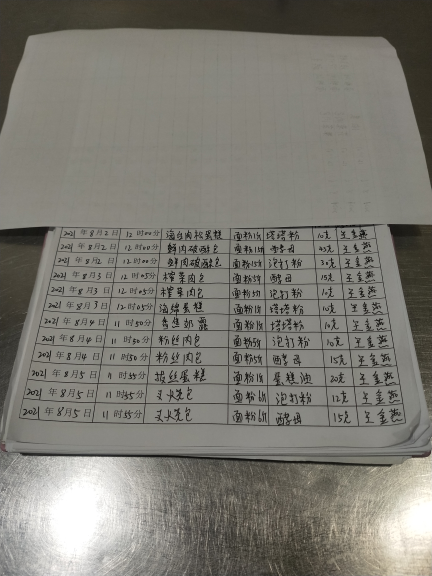 2021 年 8 月 2 日 12 时 00 分 面粉 塔塔粉 10克 王金燕
2021 年 8 月 2 日 12 时 00 分 鲜肉破酥包 面粉 酵母 45克 王金燕
2021 年 8 月 2 日 12 时 00 分 鲜肉破酥包 面粉15斤 泡打粉 30克 王金燕
2021 年 8 月 3 日 12 时 05 分 榨菜肉包 面粉5斤 酵母 15克 王金燕
2021 年 8 月 3 日 12 时 05 分 榨菜肉包 面粉5斤 泡打粉 10克 王金燕
2021 年 8 月 3 日 12 时 05 分 海绵蛋糕 面粉1斤 塔塔粉 10克 王金燕
2021 年 8 月 4 日 11 时 50 分 面粉1斤 塔塔粉 10克 王金燕
2021 年 8 月 4 日 11 时 50 分 粉丝肉包 面粉5斤 泡打粉 10克 王金燕
2021 年 8 月 4 日 11 时 50 分 粉丝肉包 面粉5斤 酵母 15克 王金燕
2021 年 8 月 5 日 11 时 35 分 拔丝蛋糕 面粉1斤 蛋糕油 20克 王金燕
2021 年 8 月 5 日 11 时 35 分 叉烧包 面粉6斤 泡打粉 12克 王金燕
2021 年 8 月 5 日 11 时 35 分 叉烧包 面粉6斤 酵母 15克 王金燕